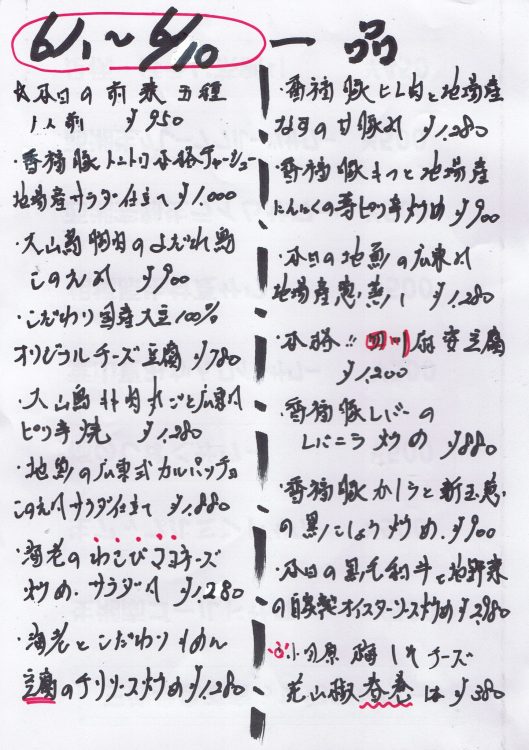 6/1〜6/10 一品
本日の前菜五種
1人前 ¥950
・香福豚トントロ本格チャーシュー
地場産サラダ仕立て ¥1.000
・大山鶏胸肉のよだれ鶏
ごまだれ ¥900
・こだわり国産大豆100%
オリジナルチーズ豆腐 ¥780
・大山鶏 丸ごと
ピリ辛焼 ¥1.280
・地魚の広東式カルパッチョ
サラダ仕立て ¥1.880
・海老のわさびマヨネーズ
炒め・サラダ入 ¥1.280
・海老とこだわりもめん
豆腐のチリソース炒め ¥1.280
・香福豚ヒレ肉と地場産
なすの甘豚 ¥1.280
・香福豚もつと地場産
にんにくの芽ピリ辛炒め ¥900
・本日の地魚の広東
地場産葱蒸し ¥1.280
・本格!! 四川麻婆豆腐
¥1.200
・香福豚レバーの
レバニラ炒め ¥880
・香福豚かしらと新玉葱
の黒こしょう炒め. ¥900
・本日の黒毛和牛と地野菜
の自家製オイスターソース炒め ¥2.980
小田原 しそチーズ
花山椒春巻 1本 ¥380